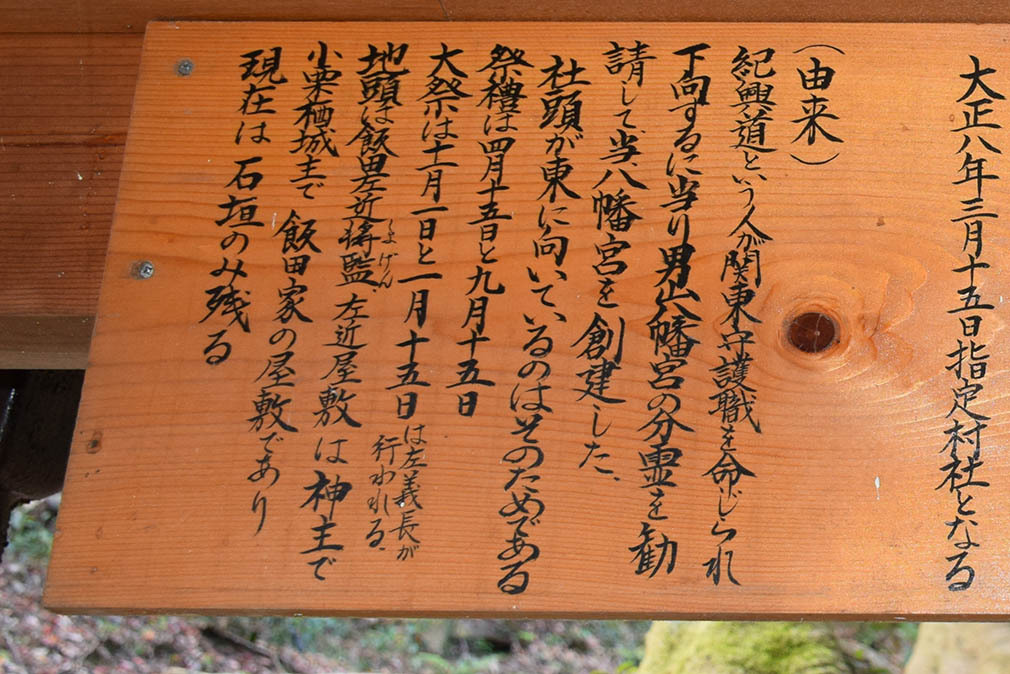 大正八年三月十五日指定村社となる
（由来）
紀興道という人が関東守護職を命じられ
下向するに当り男山八幡宮の分霊を勧
請して、当八幡宮を創建した、
社頭が東に向いているのはそのためである
祭禮は四月十五日と九月十五日
大祭は十一月一日と一月十五日は左義長が行われる、
地頭は飯田左近将監左近屋敷は神主で
しょげん
小栗栖城主で飯田家の屋敷であり
現在は石垣のみ残る